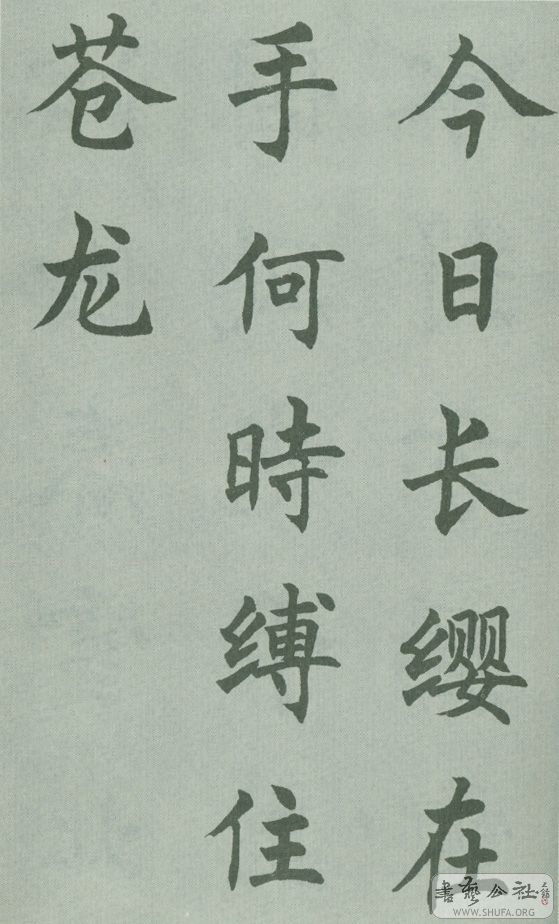 今日长缨在
手何時缚住
苍龙
書藝公社
WWW.SHUFA.ORG